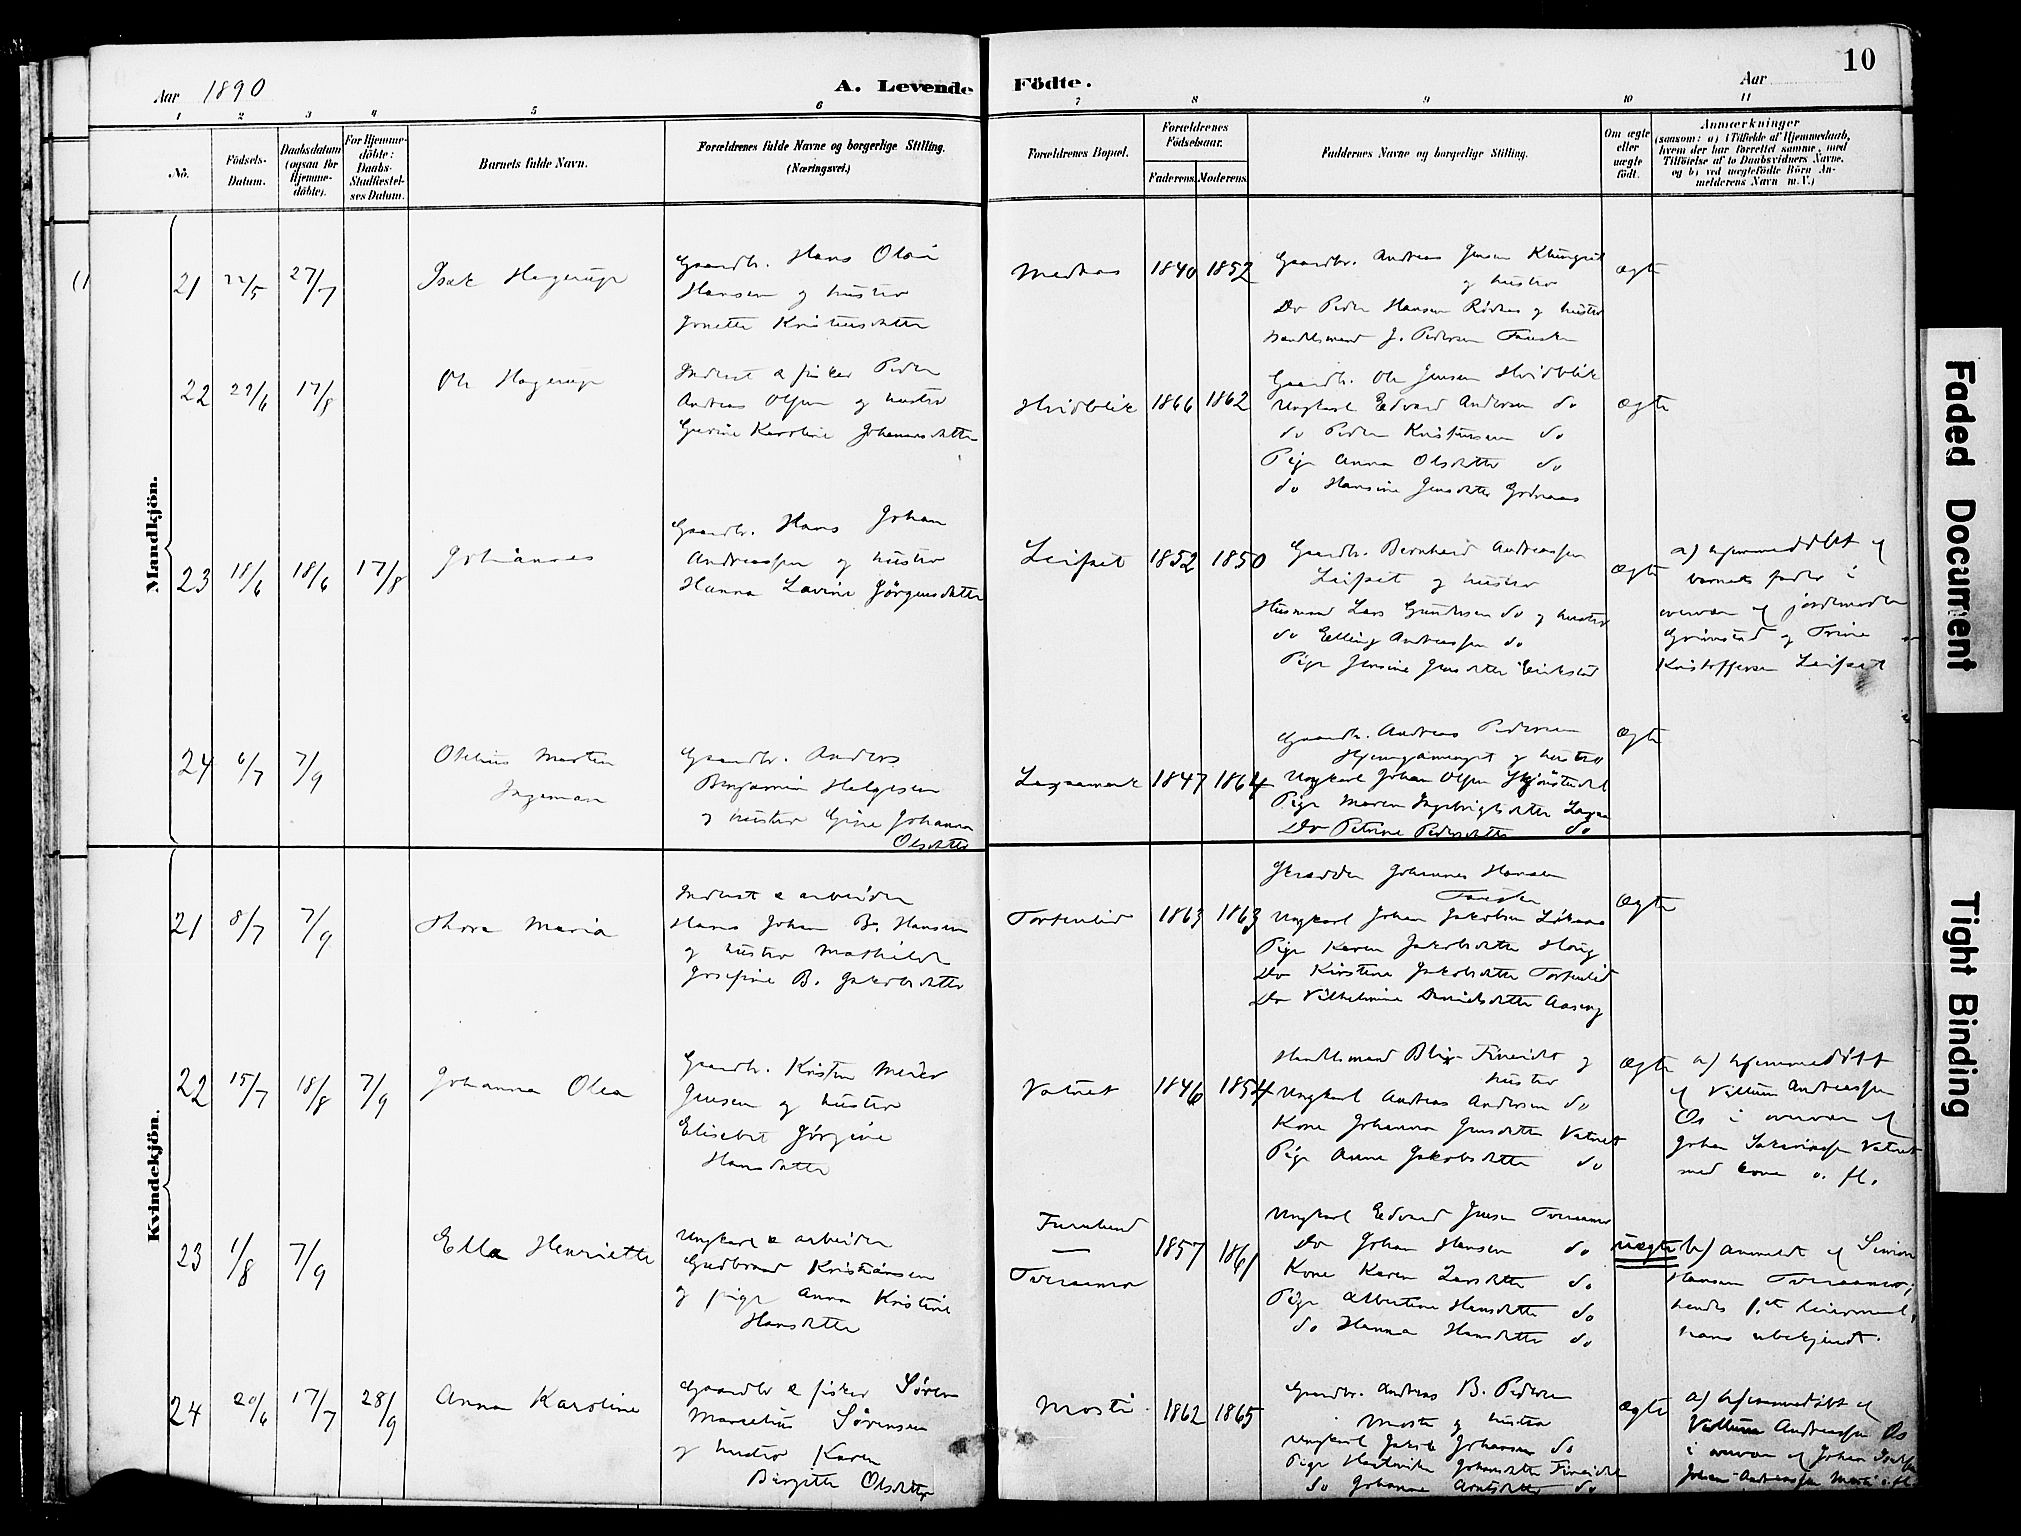 Aar 1890
A. Levende Födte.
Aar
10
1 2 3 4 5 6 7 8 9 10 11
No.
Födsels-Datum.
Daabsdatum (ogsaa for Hjemmedöbte).
For Hjemmedöbte: Daabs-Stadfæstelses Datum.
Barnets fulde Navn.
Forældrenes fulde Navne og borgerlige Stilling. (Næringsvei.)
Forældrenes Bopæl.
Forældrenes Födselsaar.
Faderens. Moderens.
Faddernes Navne og borgerlige Stilling.
Om ægte eller uægte födt.
Anmærkninger
(saasom: a) i Tilfælde af Hjemmedaab, hvem der har forrettet samme, med Tilföielse af to Daabsvidners Navne, og b) ved uægtefödte Börn Anmelderens Navn m. V.)
Mandkjön.
21 22/5 27/7 Isak Hagerup
Gaardbr. Hans Olai
Hansen og hustru
Jonette Kristensdatter
1840 1852
Gaardbr. Andreas Jensen Klungset
og hustru
Do Peder Hansen Rödaas og hustru
Handelsmand J. Pedersen Fauske
ægte
22 22/6 17/8 Ole Hagerup
Inderst & fisker Peder
Andreas Olsen og hustru
Gurine Karoline Johannesdatter
Hvidblik 1866 1862
Gaardbr. Ole Jensen Hvidblik
Ungkarl Edvard Andersen do
do Peder Kristensen do
Pige Anna Olsdatter do
do Hansine Jensdatter
ægte
23 18/6 18/6 17/8 Johannes
Gaardbr. Hans Johan
Andreassen og hustru
Hanna Lovine Jörgensdatter
Leifset 1852 1850
Gaardbr. Bernhard Andreassen
Leifset og hustru
Husmand Lars Gundersen do og hustru
do Elling Andreassen do
Pige Jensine Jensdatter Erikstad
ægte
a) hjemmedöbt af
barnets fader i
overvær af jordemoder
Grönstad og Trine
Kristoffersen Leifset
24 6/7 7/9 Martin
Ingeman
Gaardbr. Anders
Benjamin Helgesen
og hustru Gine Johanna
Olsdatter
1847 1864
Gaardbr. Andreas Pedersen
og hustru
Ungkarl Johan Olsen
Pige Maren Ingebrigtsdatter
Do Petrine Pedersdatter do
ægte
Kvindekjön.
21 8/7 7/9 Thora Maria
Inderst & arbeider
Hans Johan B. Hansen
og hustru Mathilde
Josefine B. Jakobsdatter
Torkelied 1863 1863
Skrædder Johannes Hansen
Fauske
Ungkarl Johan Jakobsen
Pige Karen Jakobsdatter Houg
Do Kirstine Jakobsdatter Torkelid
Do Vilhelmine Danielsdatter Aaseng
ægte
22 15/7 18/8 7/9 Johanna Olea
Gaardbr. Kristen Meier
Jensen og hustru
Elisabet Jörgine
Hansdatter
Vatnet 1846 1854
Handelsmand Blix Fineidet og
hustru
Ungkarl Andreas Andersen do
Kone Johanna Jensdatter Vatnet
Pige Anne Jakobsdatter do
ægte
a) hjemmedöbt
af Villum Andreassen
Os i overvær af
Johan Vatnet
med kone o. fl.
23 1/8 7/9 Ella Henriette
Ungkarl & arbeider
Gudbrand Kristiansen
og pige Anna Kristine
Hansdatter
Furulund
—
Tveraamo 1857 1861
Ungkarl Edvard Jensen Tveraamo
Do Johan Hansen do
Kone Karen Larsdatter do
Pige Albertine Hansdatter do
do Hanna Hansdatter do
uægte
b) anmeldt af Simon
Hansen Tveraamo;
hendes 1ste leiermaal,
hans ubekjendt.
24 20/6 17/7 28/9 Anna Karoline
Gaardbr & fisker Sören
Marselius Sörensen
og hustru Karen
Birgitte Olsdatter
Mosti 1862 1865
Gaardbr. Andreas B. Pedersen
Mosti og hustru
Ungkarl Jakob Johansen do
Pige Hartvikke Johansdatter Fineidet
do Johanne Arntsdatter do
ægte
a) hjemmedöbt af
Villum Andreassen Os
i overvær af Johan
Johan Andreassen Mosti o. fl.
Faded Document
Tight Binding